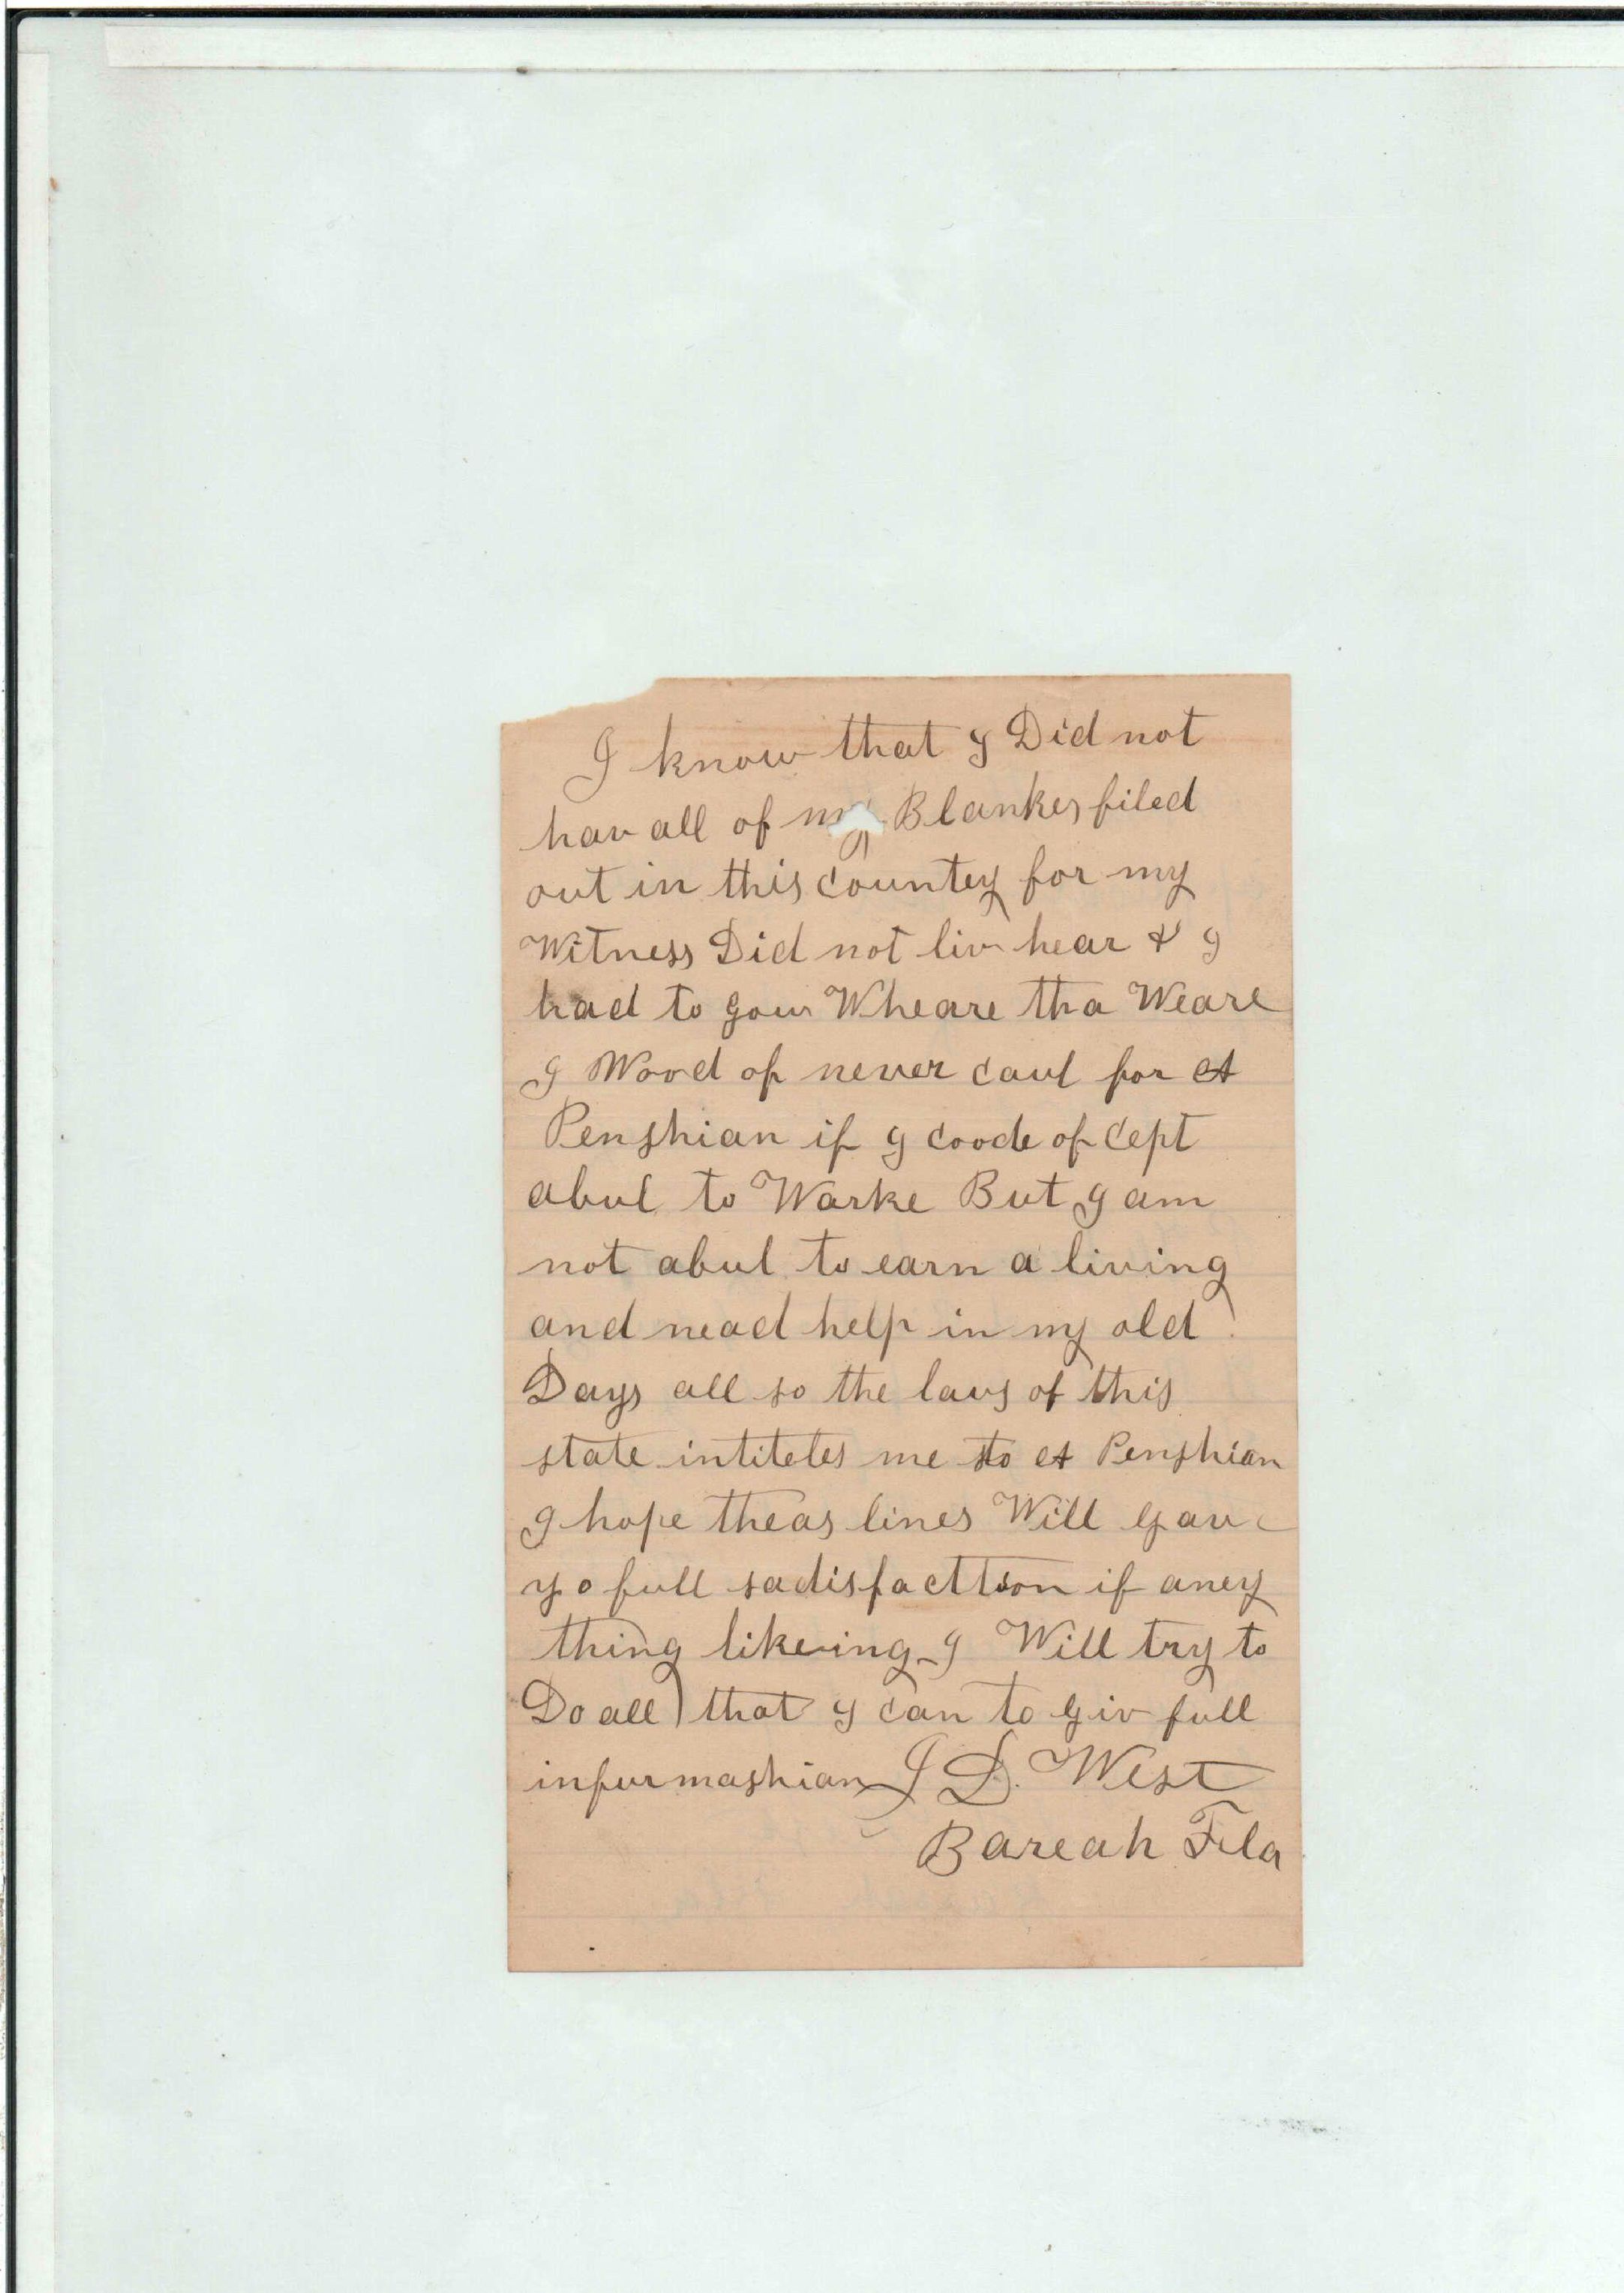 I know that I Did not
hav all of my Blankes filed
out in this countey for my
Witness Did not liv hear & I
had to gow Wheare tha Weare
I Wood of never caul for A
Penshian if I coode of cept
abul to Warke But I am
not abul to earn a living
and nead help in my old
Days all so the laws of this
state intiteles me to A Penshian
I hope theas lines Will gav
yo full sadisfacttion if aney
thing likeing I Will try to
Do all that I can to giv full
infurmashian J D. West
Bareah Fla